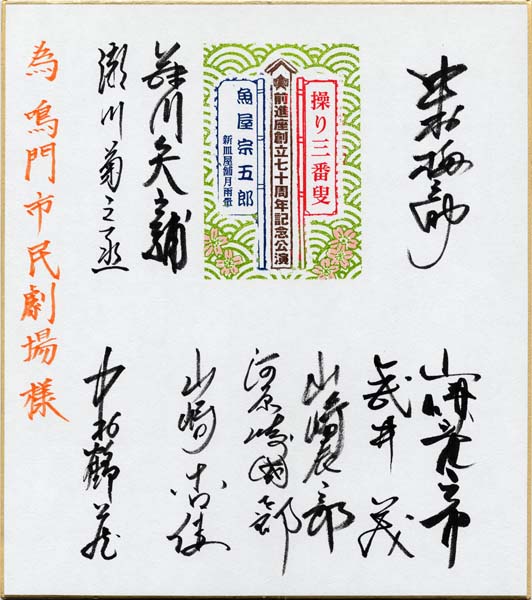 中村梅之助
操り三番叟
前進座創立七十周年記念公演
魚屋宗五郎
新皿屋舗月雨暈
藤川矢之輔
瀬川菊之丞
山崎竜之介
武井茂
山崎辰三郎
河原崎國太郎
中村鶴蔵
為鳴門市民劇場様